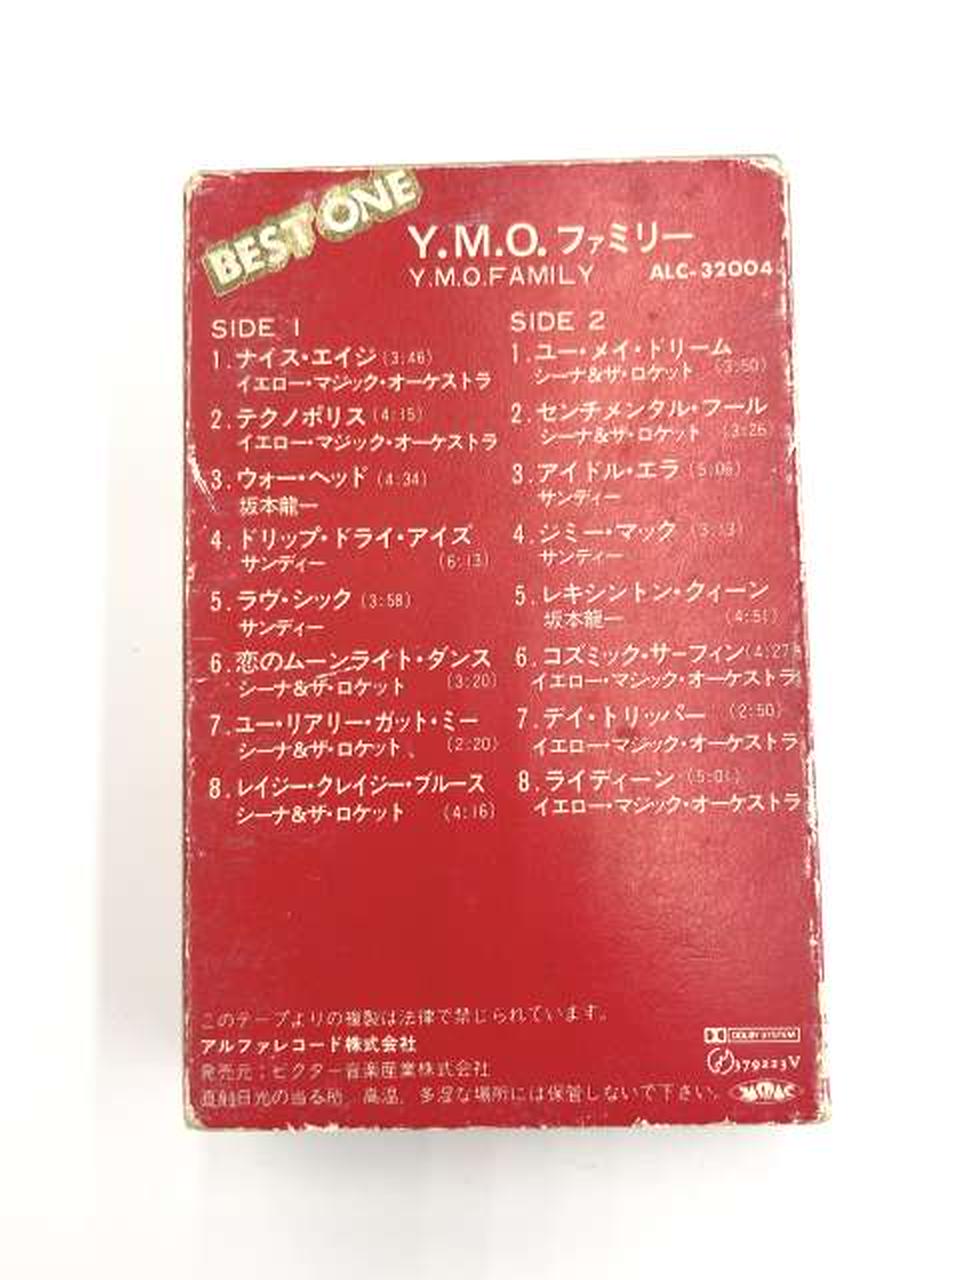 BEST ONE
Y.M.O. ファミリー
Y.M.O.FAMILY ALC-32004
SIDE 1
1.ナイス・エイジ(3:46)
イエロー・マジック・オーケストラ
2.テクノポリス(4:15)
イエロー・マジック・オーケストラ
3.ウォー・ヘッド(4:34)
坂本龍一
4.ドリップ・ドライ・アイズ
サンディー (6:13)
5.ラヴ・シック(3:58)
サンディー
6.恋のムーンライト・ダンス
シーナ&ザ・ロケット (3:20)
7.ユー・リアリー・ガット・ミー
シーナ&ザ・ロケット (2:20)
8.レイジー・クレイジー・ブルース
シーナ&ザ・ロケット (4:16)
SIDE 2
1.ユー・メイ・ドリーム
シーナ&ザ・ロケット (3:50)
2.センチメンタル・フール
シーナ&ザ・ロケット (3:26
3.アイドル・エラ(5:06)
サンディー
4.ジミー・マック(3:13)
サンディー
5.レキシントン・クィーン
坂本龍一 (4:51)
6.コズミック・サーフィン(4:27)
イエロー・マジック・オーケストラ
7.デイ・トリッパー (2:50)
イエロー・マジック・オーケストラ
8.ライディーン(5:01)
イエロー・マジック・オーケストラ
このテープよりの複製は法律で禁じられています。
アルファレコード株式会社
発売元:ビクター音楽産業株式会社
直射日光の当る所、高温、多湿な場所には保管しないで下さい。
DOLBY SYSTEM
379223V